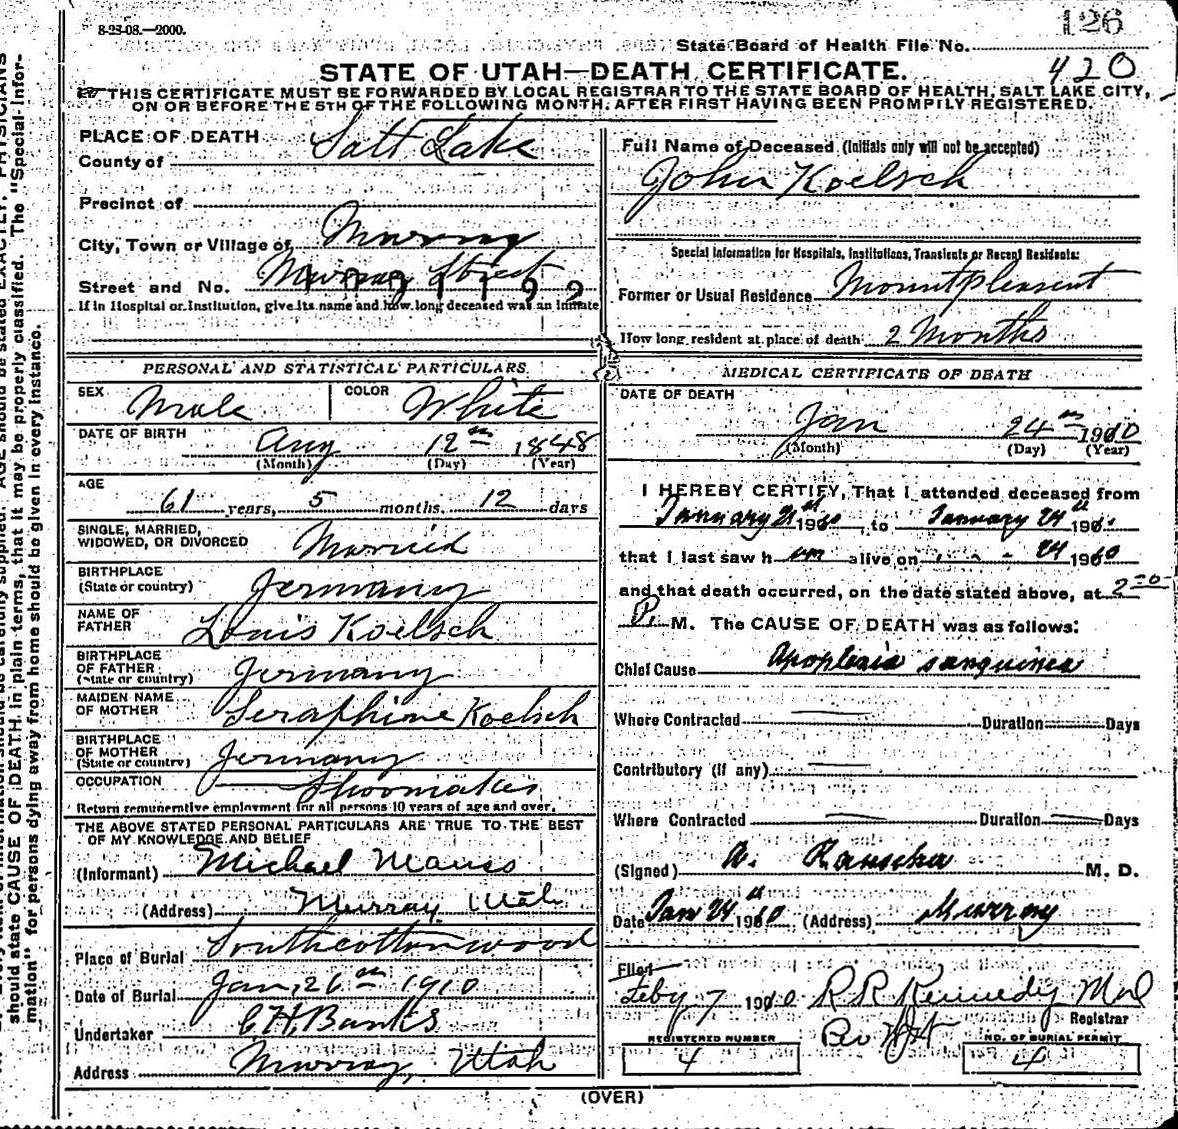 8-23-08.—2000.
126
State Board of Health File No.
420
STATE OF UTAH—DEATH CERTIFICATE.
THIS CERTIFICATE MUST BE FORWARDED BY LOCAL REGISTRAR TO THE STATE BOARD OF HEALTH, SALT LAKE CITY,
ON OR BEFORE THE 5TH OF THE FOLLOWING MONTH, AFTER FIRST HAVING BEEN PROMPILY REGISTERED.
PLACE OF DEATH
County of Salt Lake
Precinct of
City, Town or Village of Murray
Street and No. Murray Street
If in Hospital or Institution, give its name and how long deceased was an inmate
PERSONAL AND STATISTICAL PARTICULARS
SEX Male COLOR White
DATE OF BIRTH Aug 12th 1848
(Month) (Day) (Year)
AGE
61 years, 5 months, 12 days
SINGLE, MARRIED,
WIDOWED, OR DIVORCED Married
BIRTHPLACE
(State or country) Germany
NAME OF
FATHER Louis Koelsch
BIRTHPLACE
OF FATHER
(State or country) Germany
MAIDEN NAME
OF MOTHER Seraphine Koelsch
BIRTHPLACE
OF MOTHER
(State or country) Germany
OCCUPATION Shoomaker
Return remunerative employment for all persons 10 years of age and over.
THE ABOVE STATED PERSONAL PARTICULARS ARE TRUE TO THE BEST
OF MY KNOWLEDGE AND BELIEF
(Informant) Michael Mauss
(Address) Murray Utah
Place of Burial Southcottonwood
Date of Burial Jan, 26th 1910
Undertaker C H Banks
Address Murray, Utah
Full Name of Deceased (Initials only will not be accepted)
John Koelsch
Special Information for Hospitals, Institutions, Transients or Recent Residents:
Former or Usual Residence Mountpleasent
How long resident at place of death 2 Months
MEDICAL CERTIFICATE OF DEATH
DATE OF DEATH
Jan 24th 1910
(Month) (Day) (Year)
I HEREBY CERTIFY, That I attended deceased from
January 21st 1910, to January 24th 191
that I last saw h im alive on " " - 24 1910
and that death occurred, on the date stated above, at 2
P. M. The CAUSE OF DEATH was as follows:
Chief Cause Apoplexia sanguinea
Where Contracted Duration Days
Contributory (if any)
Where Contracted Duration Days
(Signed) A. Rauscher M. D.
Date Jan 24th 1910 (Address) Murray
Filed
Feby 7 1910 R R Kennedy
Registrar
REGISTERED NUMBER
4
NO. OF BURIAL PERMIT
4
(OVER)
should state CAUSE OF DEATH in plain terms, that it may be properly classified. The "Special Infor-
mation" for persons dying away from home should be given in every instance.